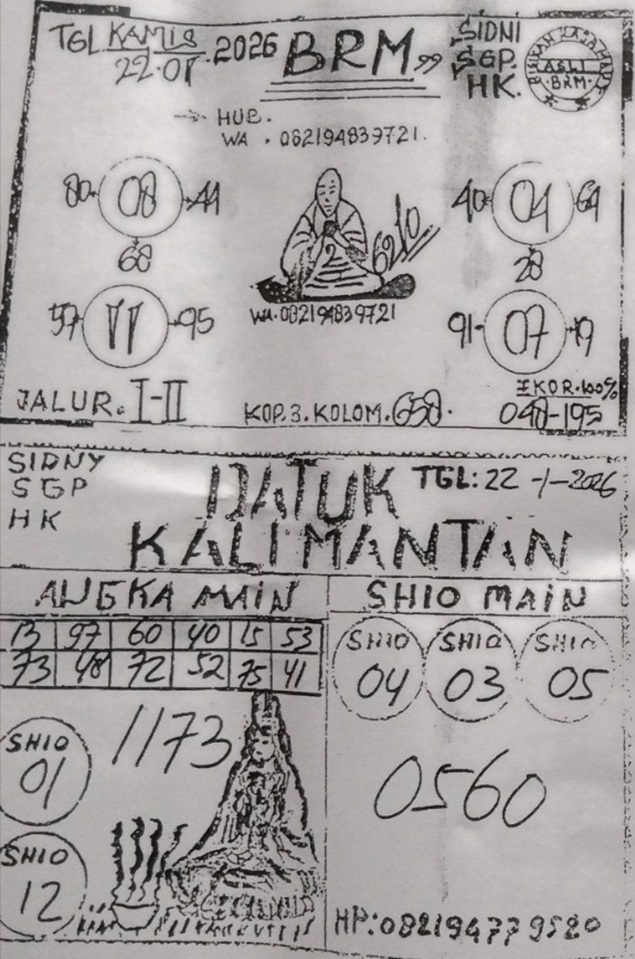 TGL KAMIS 22.01.2026
BRM
SIDNI
SGP.
HK.
ASLI
BRM
HUB.
WA. 082194839721.
80 08 44
68
57 11 95
2
6210
WA.082194839721
40 04 64
28
91 07 19
JALUR. I-II
KOP.3.KOLOM.658.
EKOR.100%
048-195
SIDNY
SGP
HK
DATUK
KALIMANTAN
TGL: 22-1-2026
ANGKA MAIN
13 97 60 40 15 53
73 48 72 52 75 41
SHIO
01
1173
SHIO
12
SHIO MAIN
SHIO SHIO SHIO
04 03 05
0560
HP:082194779520